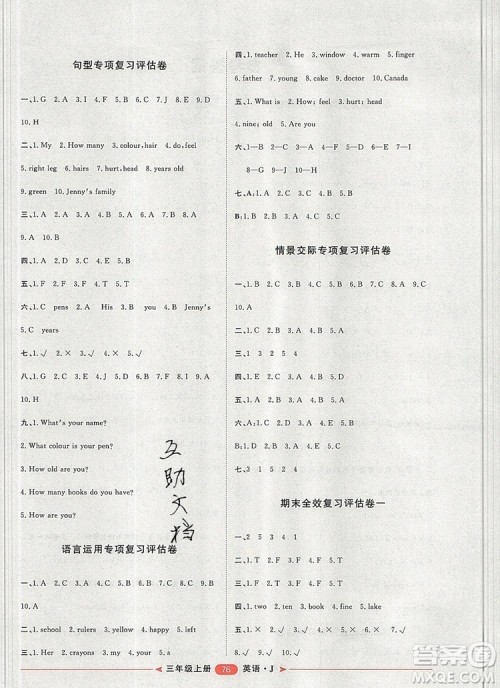 句型专项复习评估卷
一、1. G 2. A 3. I 4. F 5. B 6. C 7. H 8. E 9. D
10. H
二、1. My 2. How many 3. colour, hair 4. do, feel
5. right leg 6. hairs 7. hurt, head 8. years
9. green 10. Jenny's family
三、1. A 2. B 3. C 4. B 5. C 6. A 7. B 8. B
9. A 10. B
四、1. A 2. B 3. A 4. C 5. B
五、1. F 2. F 3. T 4. F 5. F
六、1. C pens 2. A His 3. B you 4. B Jenny's
5. C years
七、1. √ 2. × 3. √ 4. × 5. √
八、1. G 2. A 3. I 4. F 5. B 6. C 7. J 8. E 9. D
10. H
九、1. What's your name?
2. What colour is your pen?
3. How old are you?
4. How many books do you have?
5. How are you?
语言运用专项复习评估卷
一、1. D 2. A 3. C 4. A 5. B 6. C 7. A 8. C
二、1. school 2. rulers 3. yellow 4. happy
5. old
三、1. Her 2. crayons 3. my 4. is 5. have
四、1. teacher 2. He 3. warm 4. window 5. finger
6. father 7. young 8. cake 9. doctor 10. Canada
五、1. What is 2. How; feel 3. hurt; head
4. nine; old 5. Are you
六、1—B 2—D 3—C 4—E 5—A 6—F 7—I
8—G 9—J 10—H
七、A: 1. A 2. C 3. E 4. D 5. B
B: 1. B 2. C 3. B 4. C 5. A
情景交际专项复习评估卷
一、1. C 2. A 3. A 4. B 5. A 6. C 7. B 8. A 9. B
10. A
二、1. C 2. B 3. A 4. B 5. A 6. C 7. B 8. A
三、1 3 2 5 4
四、1. D 2. C 3. A 4. E 5. B
五、1. A 2. B 3. B 4. A 5. A
六、A: 1. B 2. D 3. A 4. E 5. C
B: 1. E 2. B 3. D 4. A 5. C
七、3 1 5 2 4
期末全效复习评估卷一
一、2 5 3 4 1
二、1. T 2. F 3. T 4. F 5. F
三、1. B 2. A 3. A 4. A 5. B
四、1. two 2. ten 3. from 4. leg 5. old
五、√ × × √ √
三年级上册 76 英语·J
互
助
文
档
作业精灵